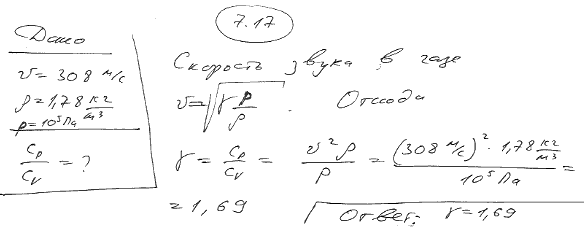 7.17
Дано
v = 308 м/с
ρ = 1,78 кг/м³
p = 10⁵ Па
Cp/CV = ?
Скорость звука в газе
v = √(γ p/ρ). Отсюда
γ = Cp/CV = v²ρ/p = (308 м/с)² · 1,78 кг/м³ / 10⁵ Па =
= 1,69
Ответ: γ = 1,69